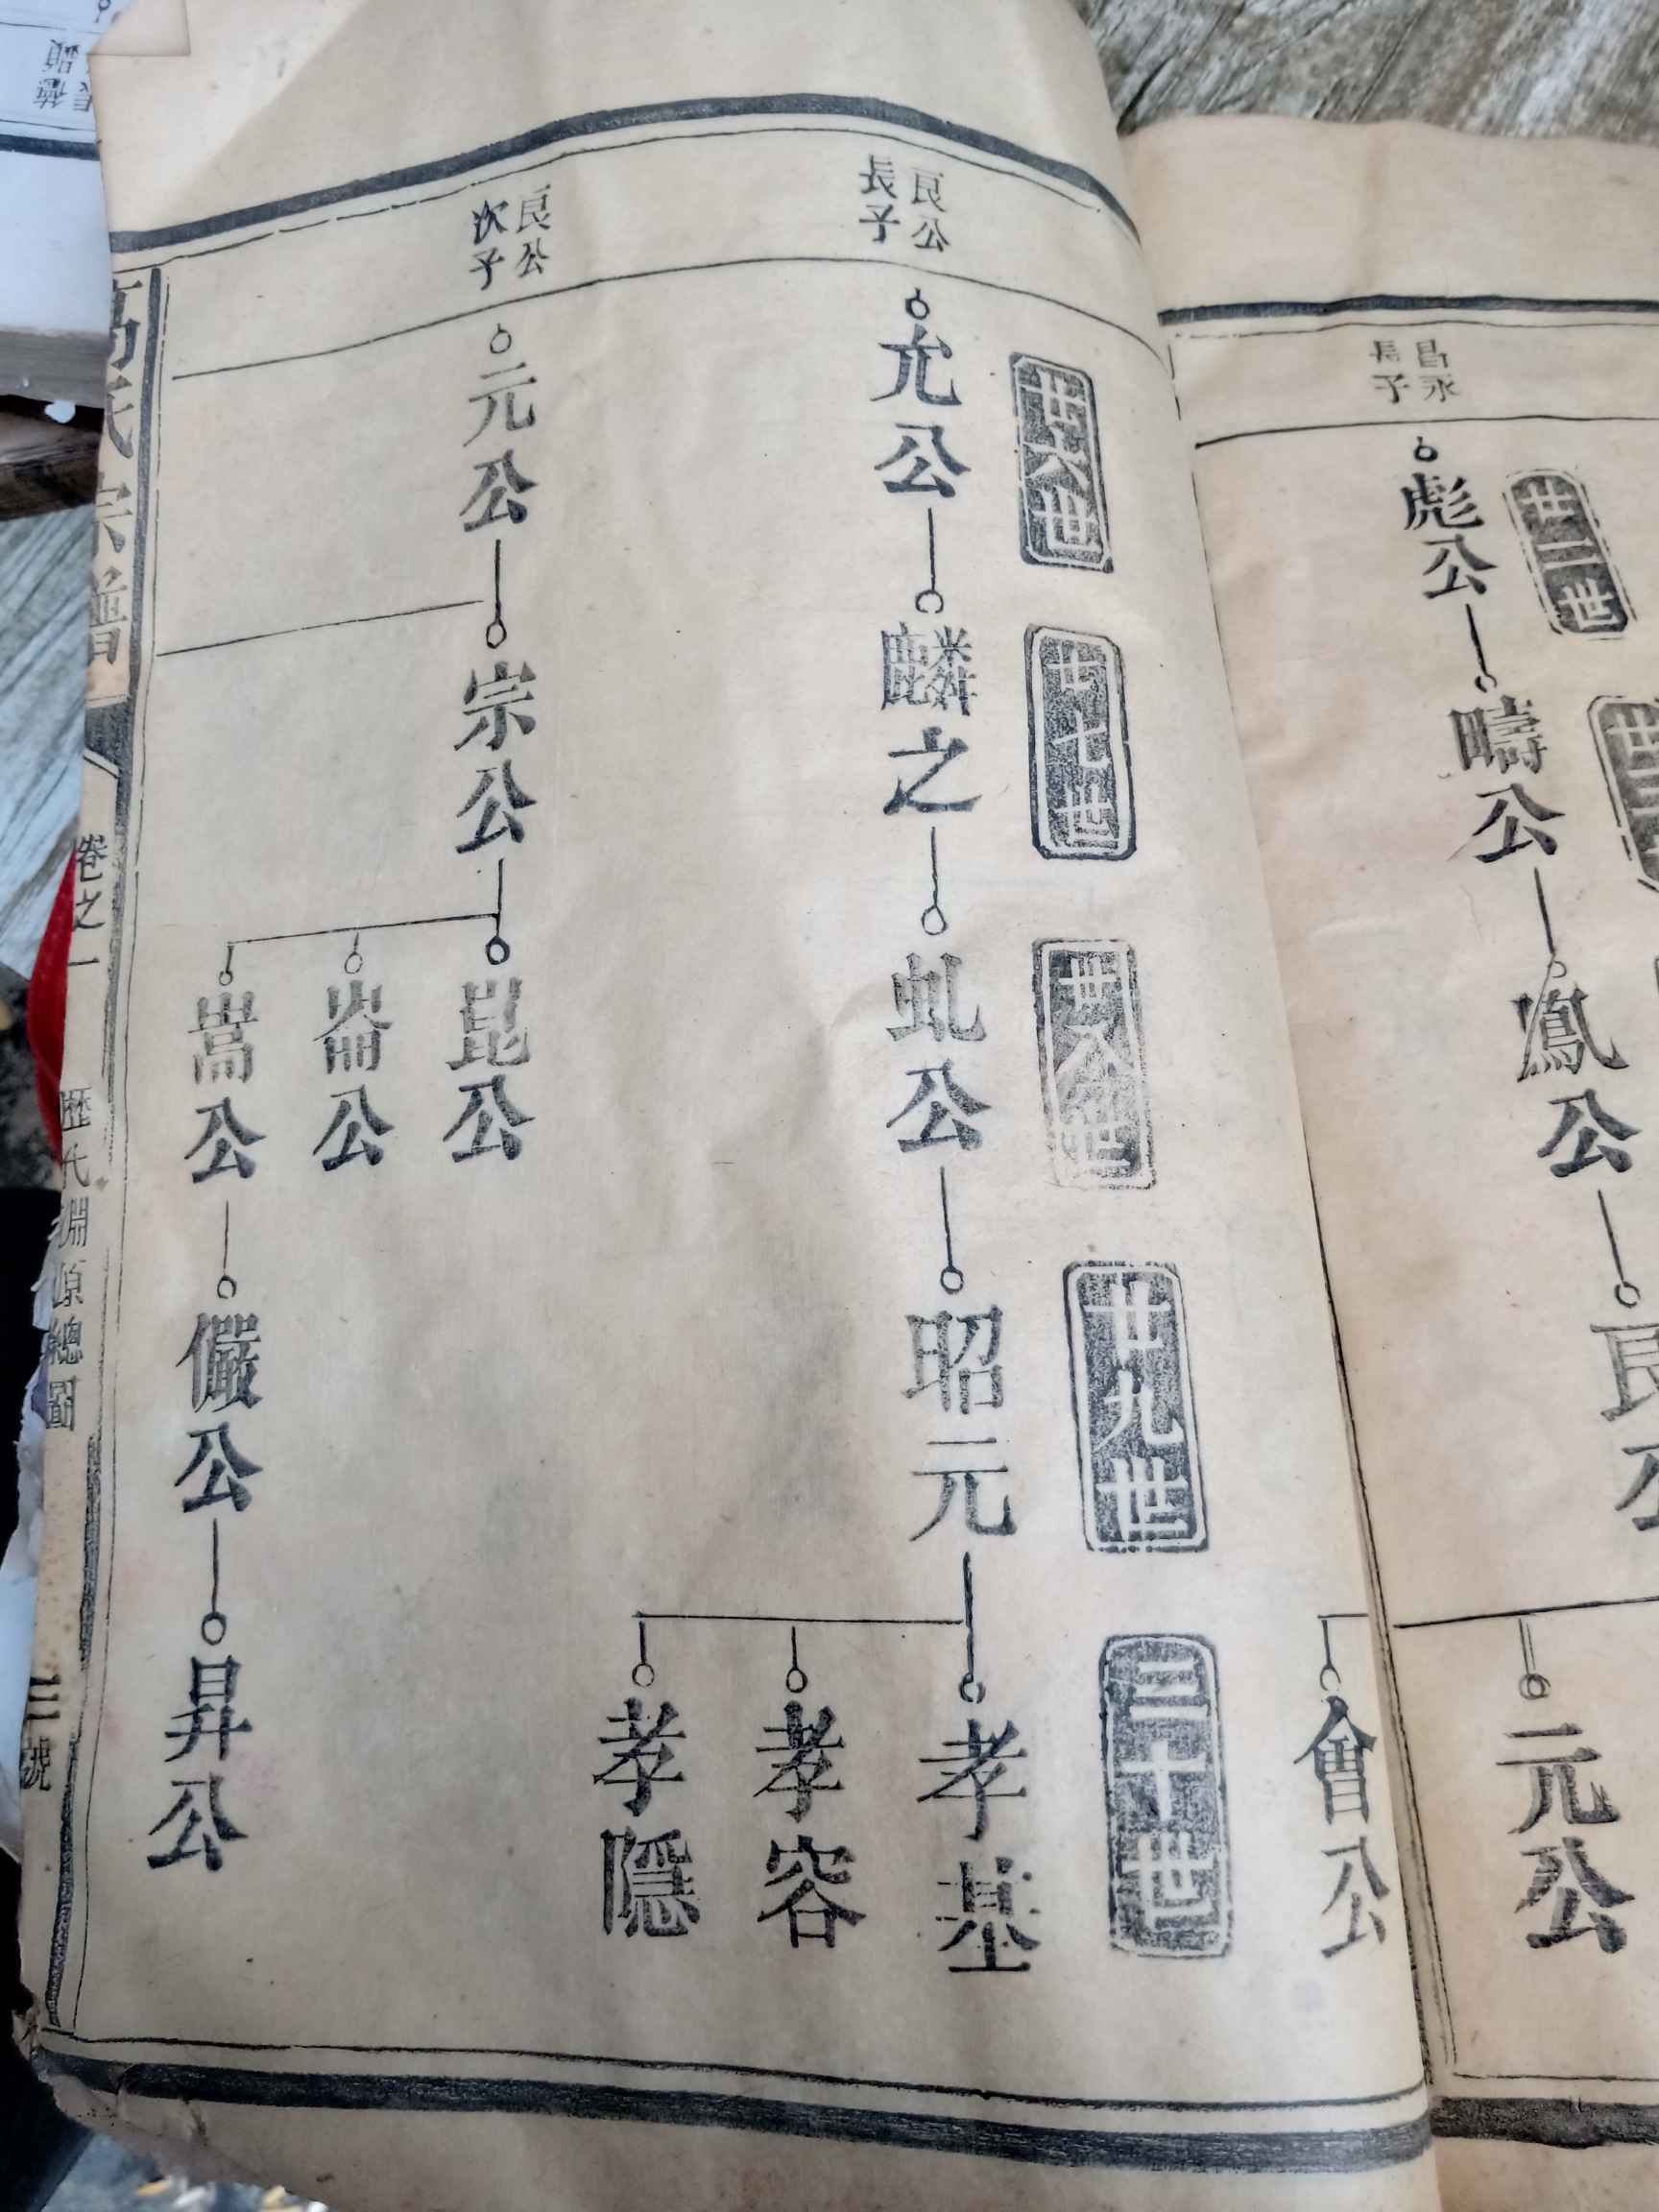 昌永
長子
廿一世
彪公
疇公
鳳公
良公
元公
會公
良公
長子
廿六世
廿七世
廿八世
廿九世
三十世
允公
麟之
虬公
昭元
孝基
孝容
孝隱
良公
次子
元公
宗公
崑公
崙公
嵩公
儼公
昇公
高氏宗譜
卷之一
歷代淵源總圖
三號